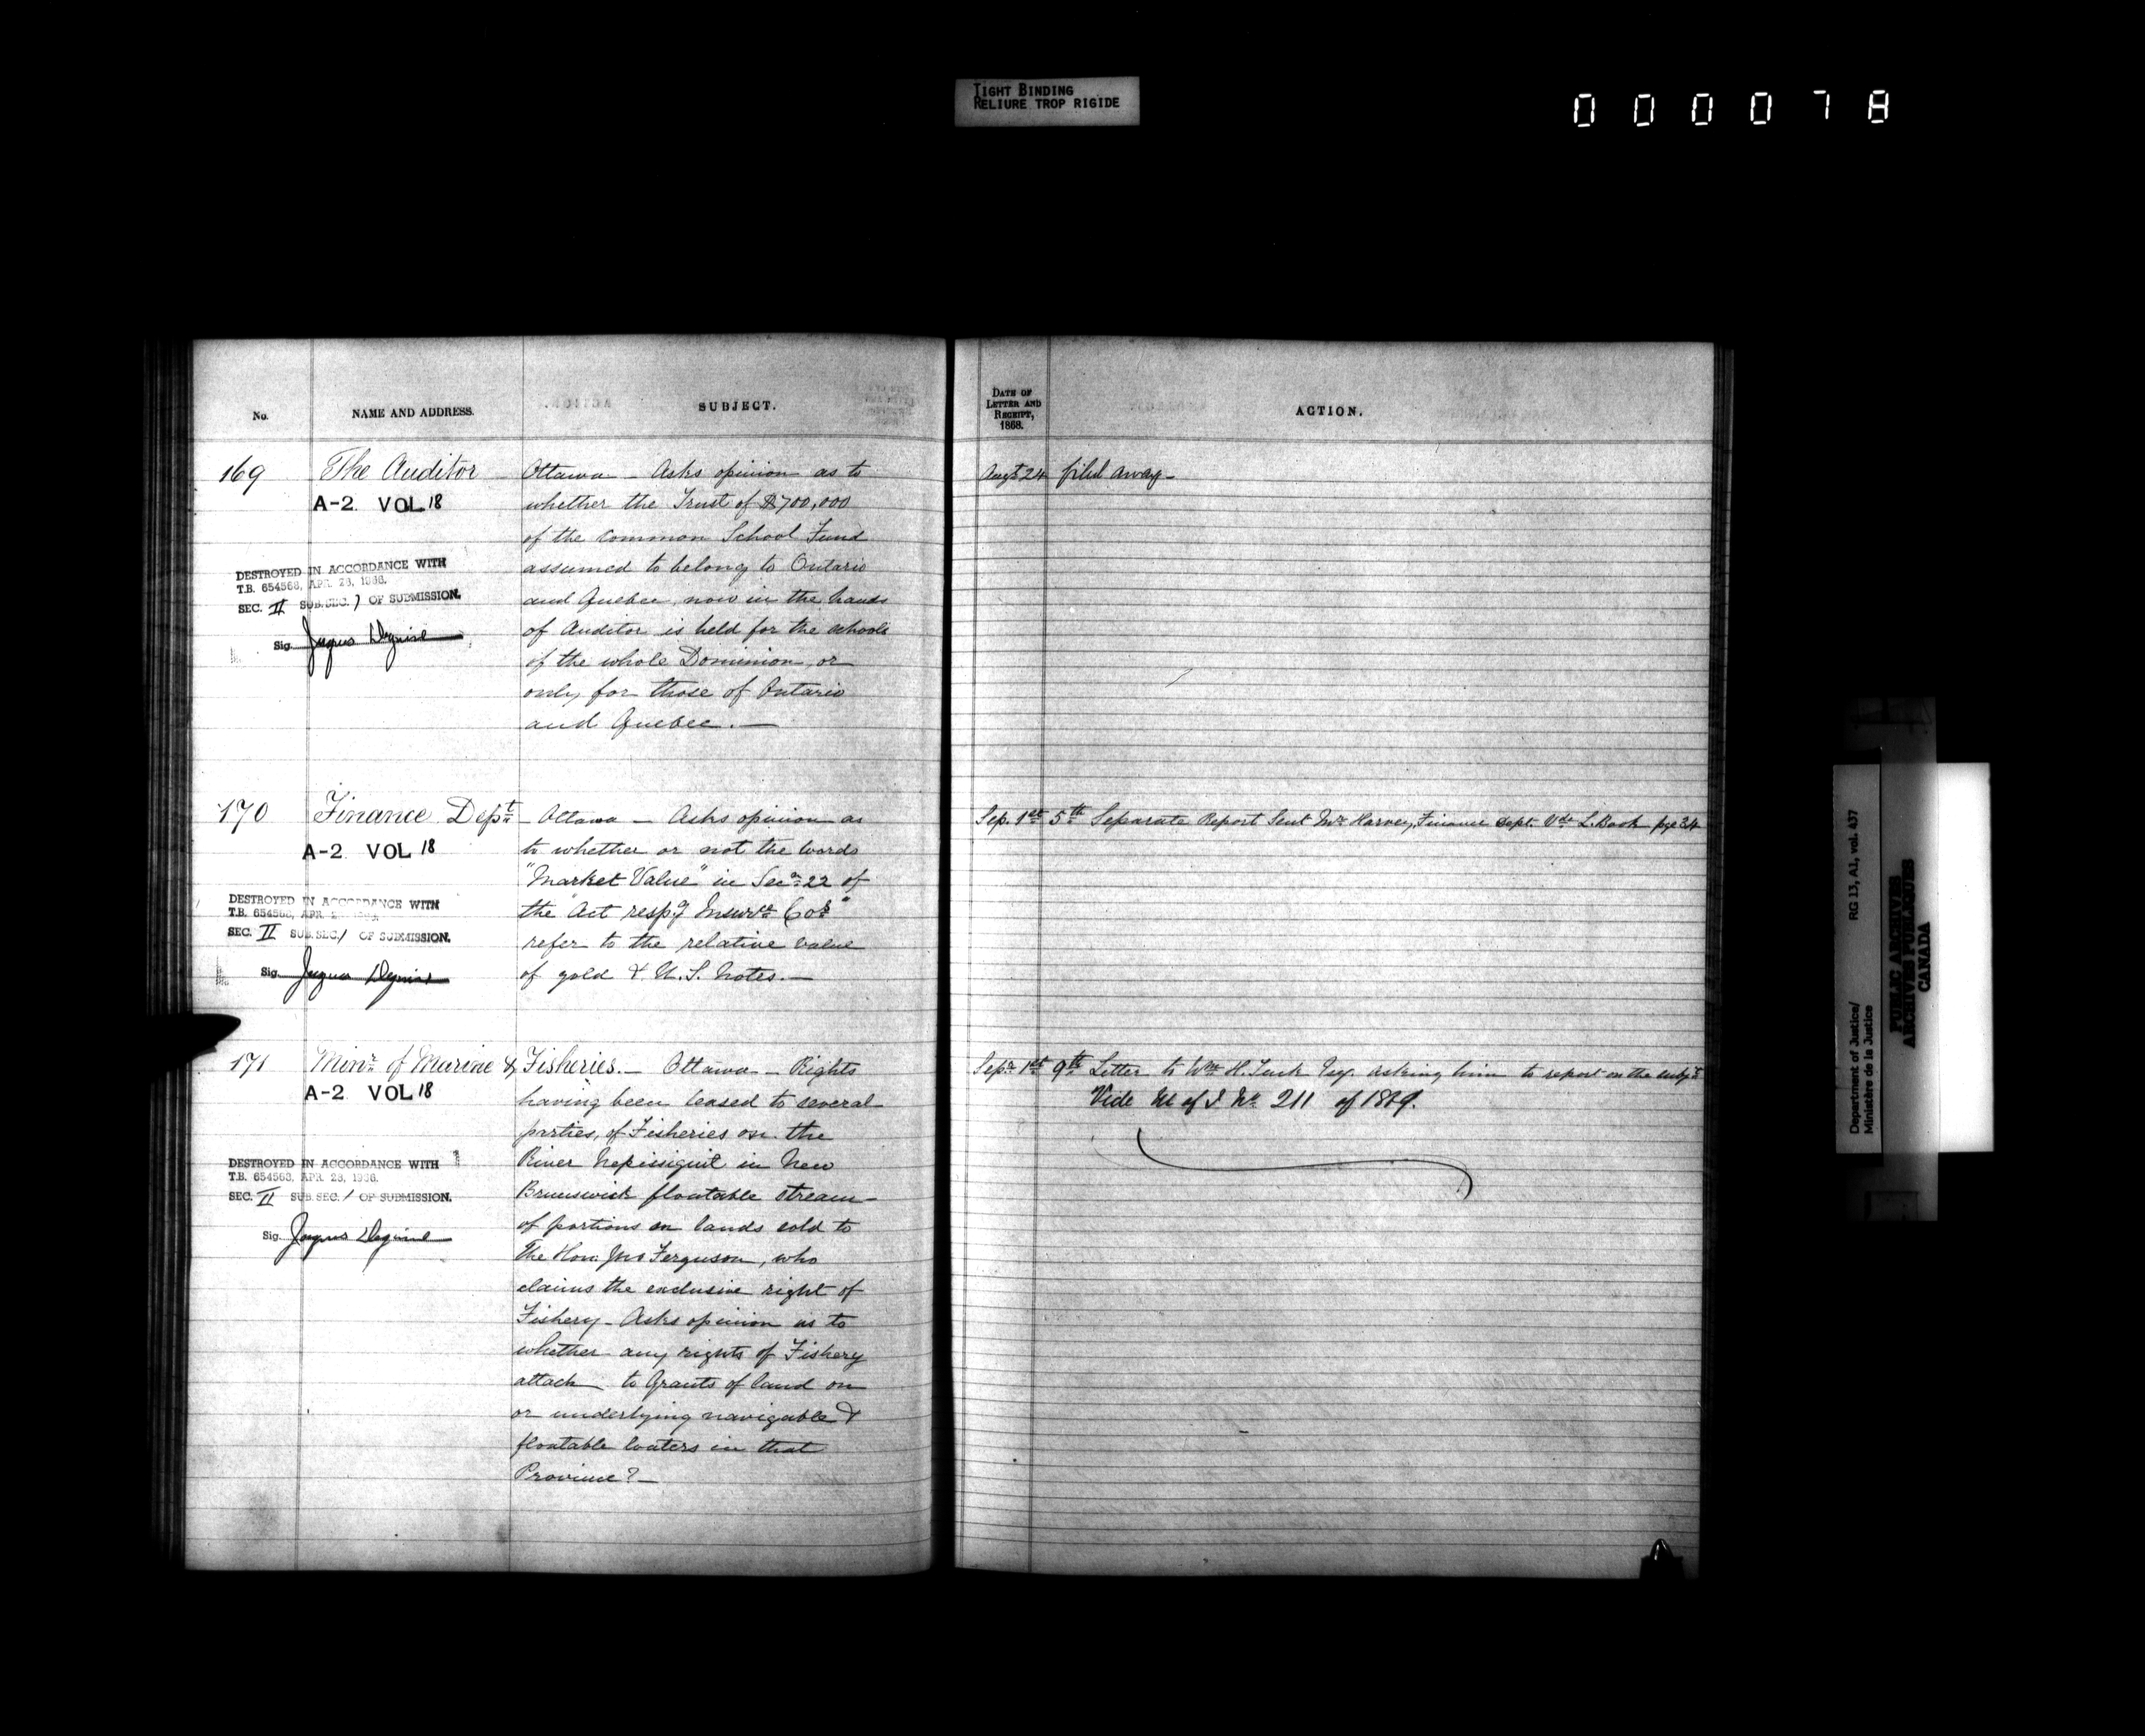 TIGHT BINDING
RELIURE TROP RIGIDE
000078
No.
NAME AND ADDRESS.
SUBJECT.
DATE OF
LETTER AND
RECEIPT,
1868.
ACTION.
169
The Auditor
Ottawa — Asks opinion as to
A-2 VOL 18
whether the Trust of $700,000
of the Common School Fund
assumed to belong to Ontario
and Quebec, now in the hands
of Auditor is held for the schools
of the whole Dominion, or
only for those of Ontario
and Quebec. —
DESTROYED IN ACCORDANCE WITH
T.B. 654563, APR. 28, 1966.
SEC. II SUB.SEC. 1 OF SUBMISSION.
Sig.
Augt 24
filed away —
170
Finance Dept
— Ottawa — Asks opinion as
A-2 VOL 18
to whether or not the words
"Market Value" in Secn 22 of
the "Act respg Insurce Cos"
refer to the relative value
of gold & U.S. Notes. —
DESTROYED IN ACCORDANCE WITH
T.B. 654563, APR.
SEC. II SUB.SEC. 1 OF SUBMISSION.
Sig.
Sep. 1st
5th Separate Report Sent Mr Harvey, Finance Dept. Vde L. Book pge 34
171
Minr of Marine & Fisheries. — Ottawa — Rights
A-2 VOL 18
having been leased to several
parties, of Fisheries on the
River Nepissiguit in New
Brunswick floatable stream —
of portions on lands sold to
The Hon. Jno Ferguson, who
claims the exclusive right of
Fishery — Asks opinion as to
whether any rights of Fishery
attach to Grants of land on
or underlying navigable &
floatable waters in that
Province? —
DESTROYED IN ACCORDANCE WITH
T.B. 654563, APR. 28, 1966.
SEC. II SUB.SEC. 1 OF SUBMISSION.
Sig.
Sepr 1st
9th Letter to Wm H. Tuck Esq. asking him to report on the subjt
Vide of J No 211 of 1869.
Department of Justice/
Ministère de la Justice
RG 13, A1, vol. 437
PUBLIC ARCHIVES
ARCHIVES PUBLIQUES
CANADA